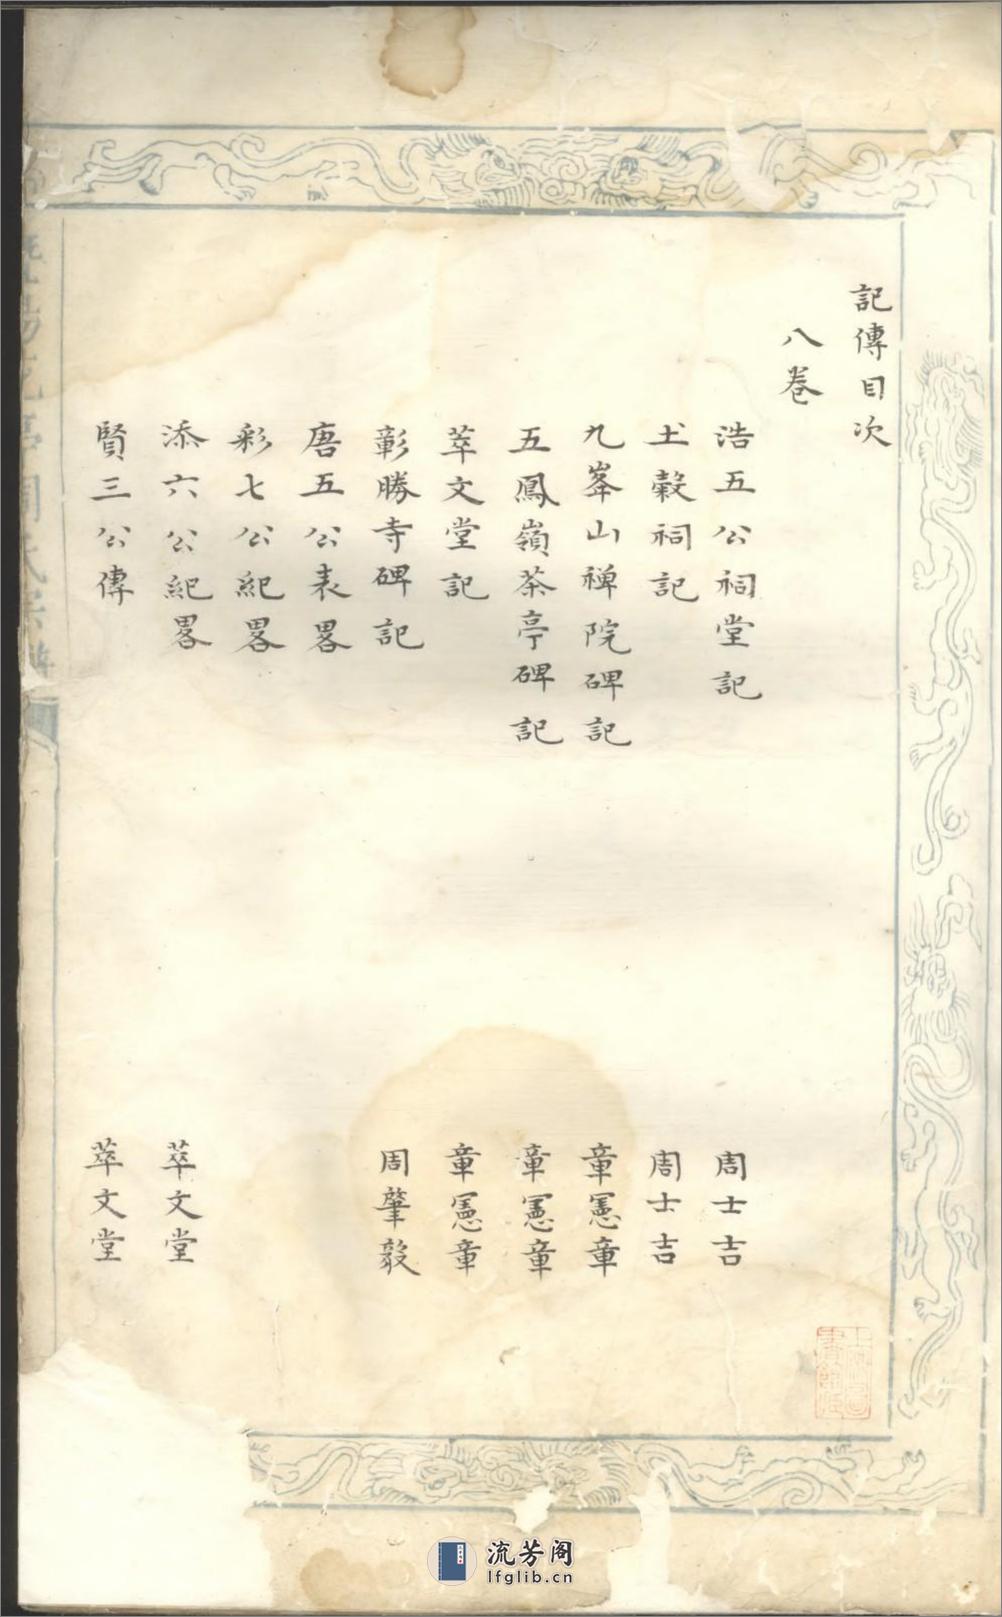 記傳目次
八卷
浩五公祠堂記 周士吉
土穀祠記 周士吉
九峯山禅院碑記 章憲章
五鳳嶺茶亭碑記 章憲章
萃文堂記 章憲章
彰勝寺碑記 周肇毅
唐五公表畧
彩七公紀畧
添六公紀畧 萃文堂
賢三公傳 萃文堂
周氏宗譜
流芳阁
lfglib.cn